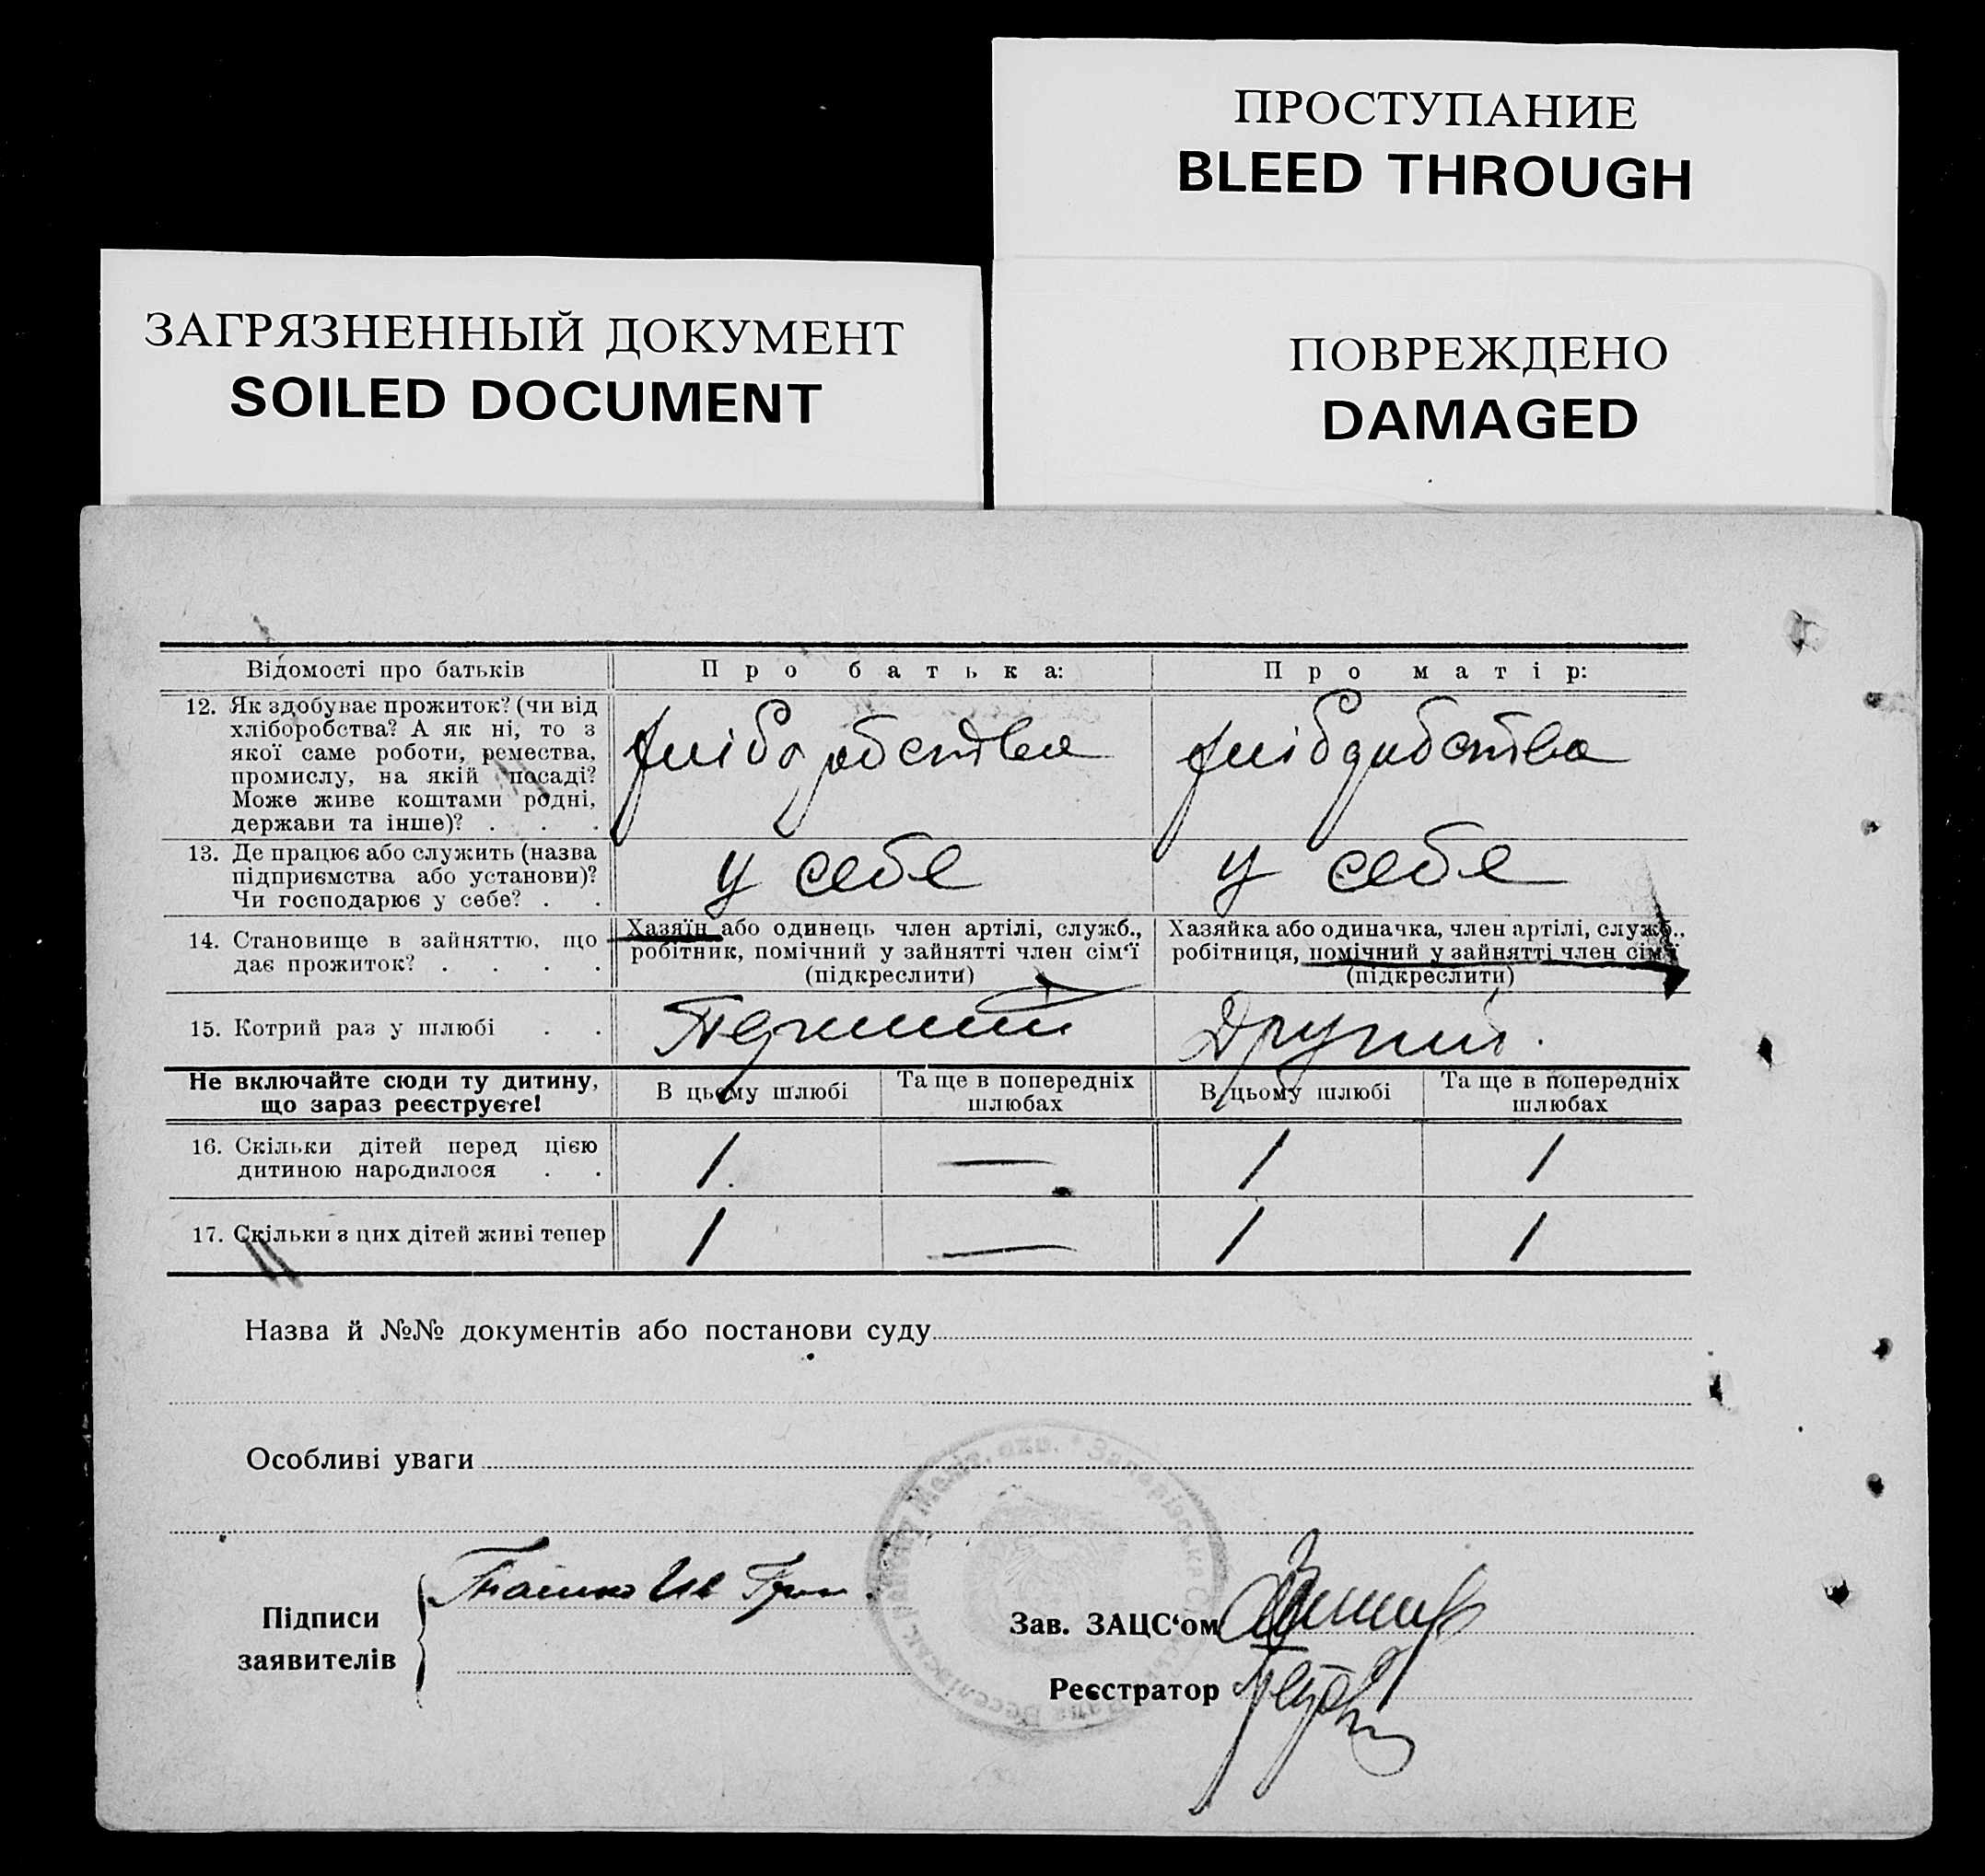 ПРОСТУПАНИЕ
BLEED THROUGH
ЗАГРЯЗНЕННЫЙ ДОКУМЕНТ
SOILED DOCUMENT
ПОВРЕЖДЕНО
DAMAGED
Відомості про батьків
Про батька:
Про матір:
12. Як здобуває прожиток? (чи від
хліборобства? А як ні, то з
якої саме роботи, ремества,
промислу, на якій посаді?
Може живе коштами родні,
держави та інше)? . . .
хліборобства
хліборобства
13. Де працює або служить (назва
підприємства або установи)?
Чи господарює у себе? . .
у себе
у себе
14. Становище в зайняттю, що
дає прожиток? . . . .
Хазяїн або одинець член артілі, служб.,
робітник, помічний у зайнятті член сім‘ї
(підкреслити)
Хазяйка або одиначка, член артілі, служб.,
робітниця, помічний у зайнятті член сім‘ї
(підкреслити)
15. Котрий раз у шлюбі . .
Перший
Другий.
Не включайте сюди ту дитину,
що зараз реєструєте!
В цьому шлюбі
Та ще в попередніх
шлюбах
В цьому шлюбі
Та ще в попередніх
шлюбах
16. Скільки дітей перед цією
дитиною народилося . .
1
—
1
1
17. Скільки з цих дітей живі тепер
1
—
1
1
Назва й №№ документів або постанови суду
Особливі уваги
Підписи
заявителів
Зав. ЗАЦС‘ом
Реєстратор